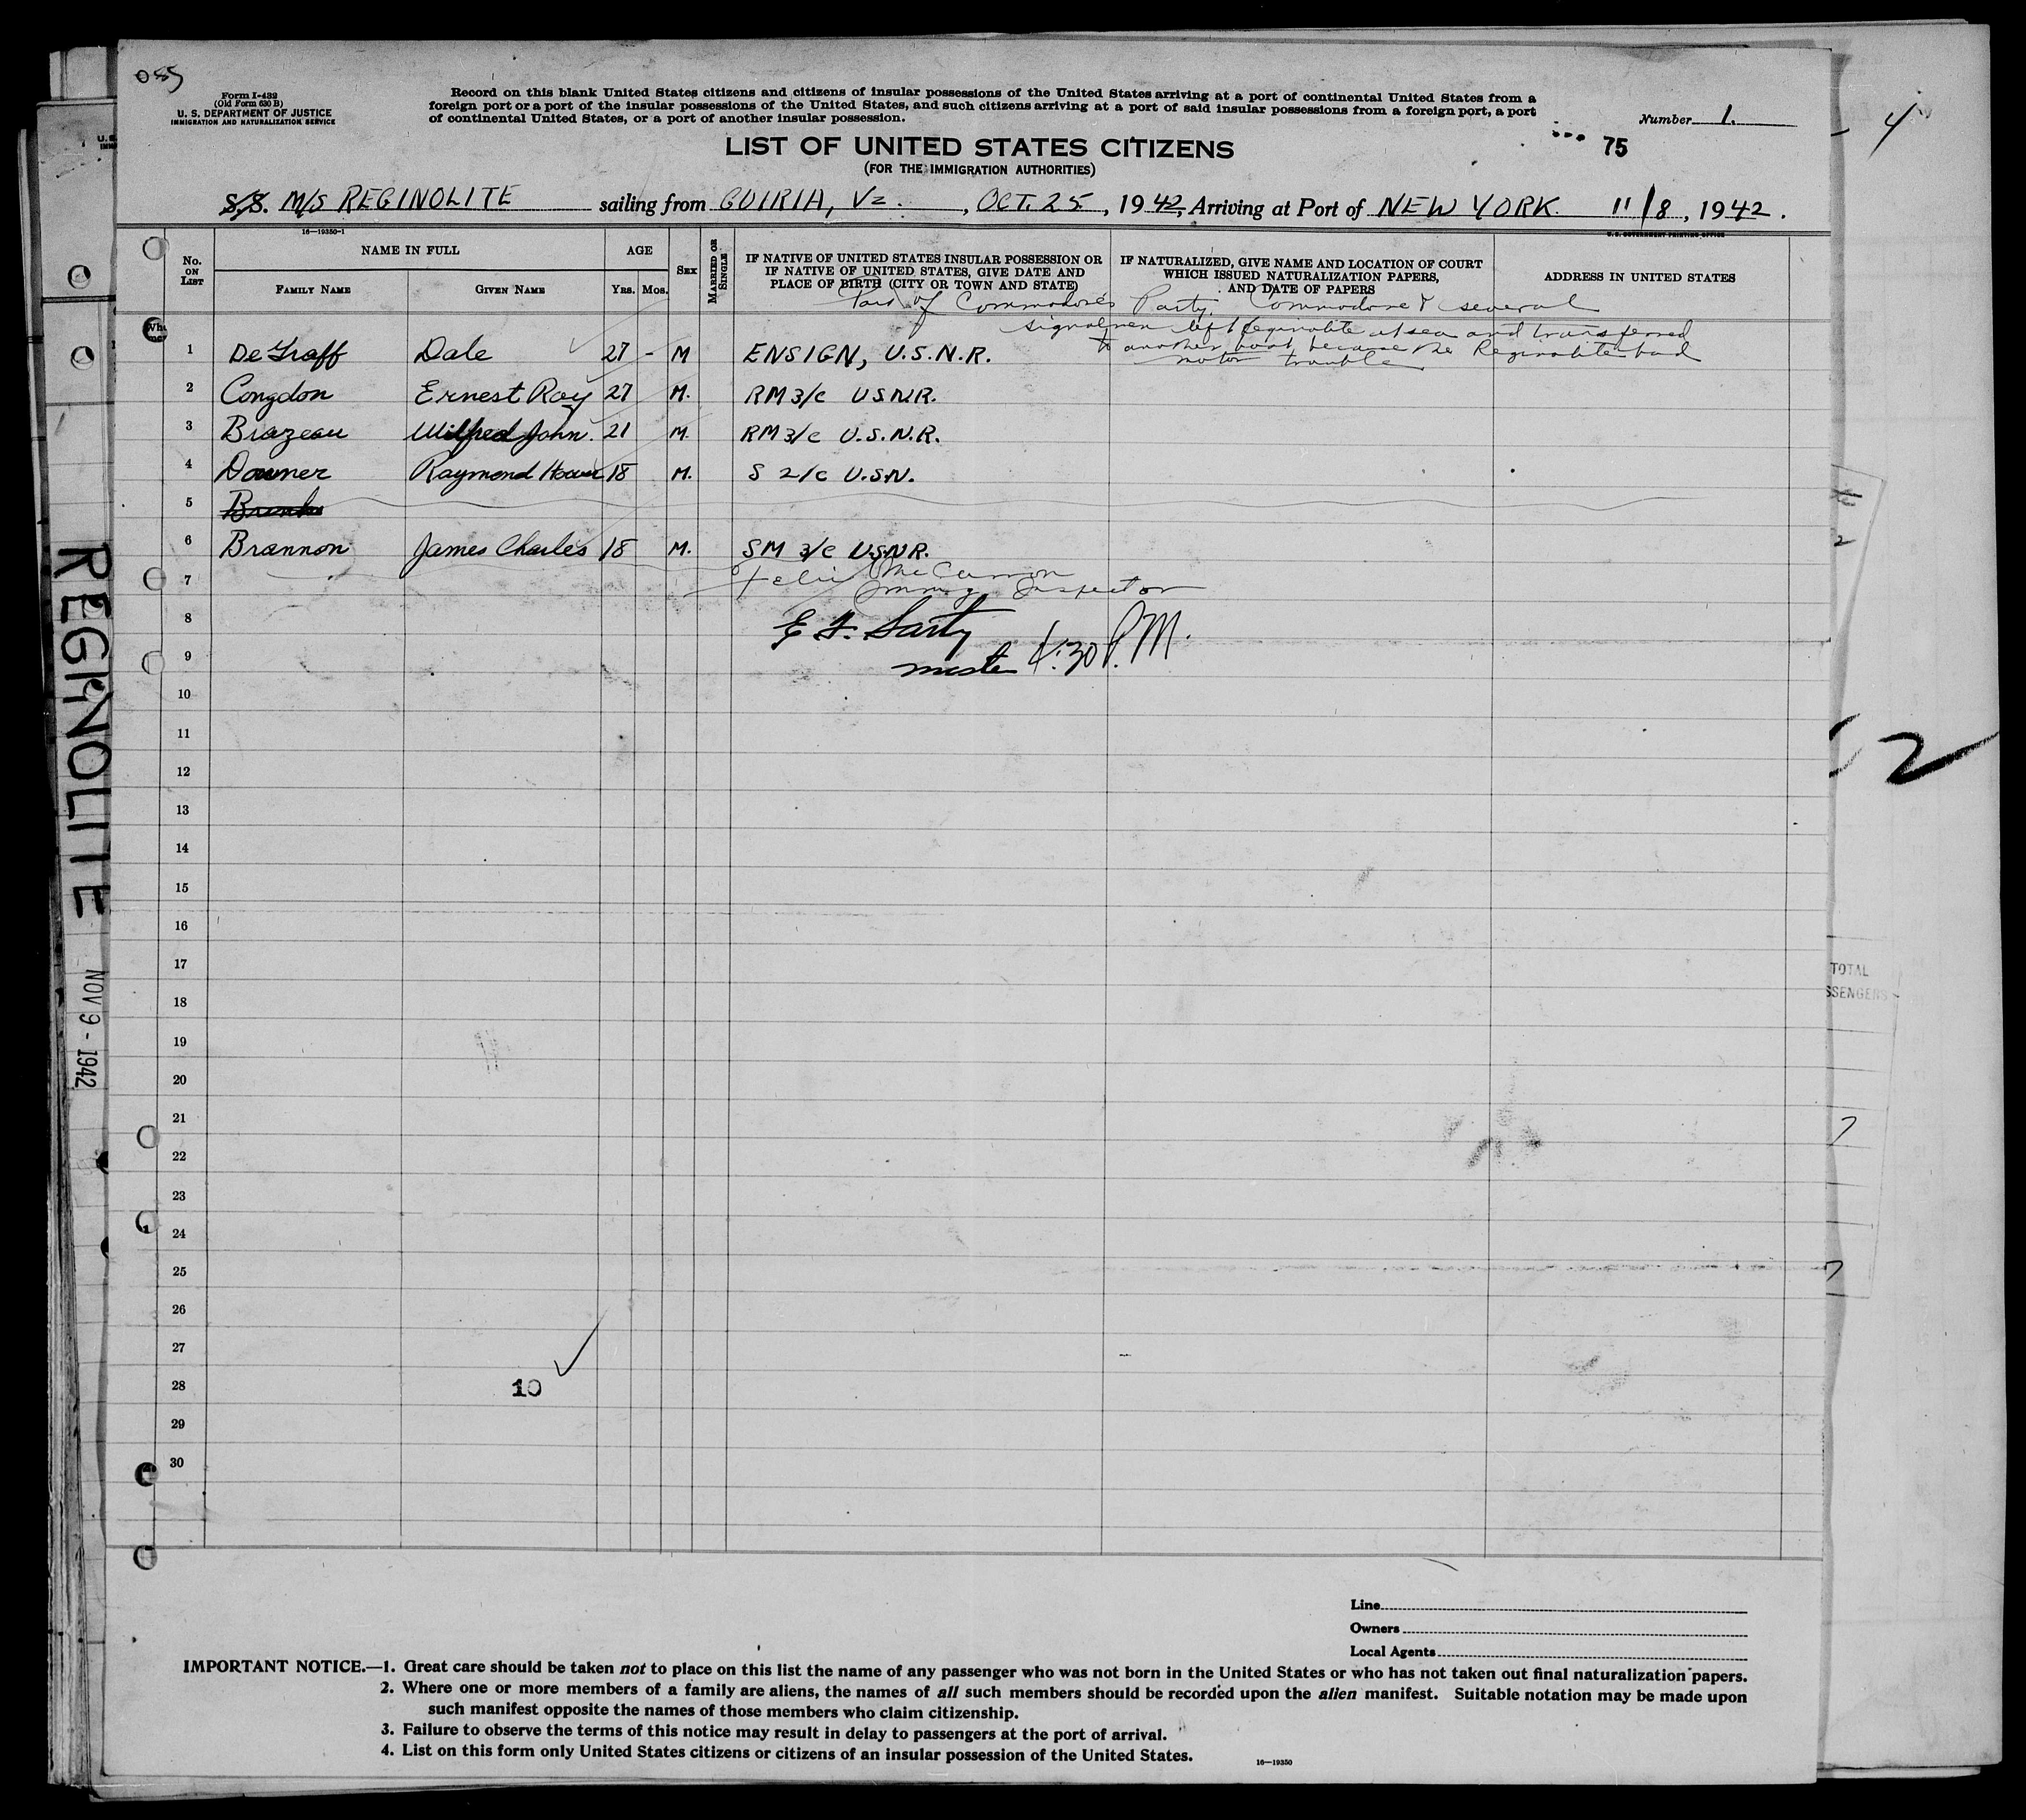 055
Form I-432
(Old Form 630 B)
U. S. DEPARTMENT OF JUSTICE
IMMIGRATION AND NATURALIZATION SERVICE
Record on this blank United States citizens and citizens of insular possessions of the United States arriving at a port of continental United States from a
foreign port or a port of the insular possessions of the United States, and such citizens arriving at a port of said insular possessions from a foreign port, a port
of continental United States, or a port of another insular possession.
Number 1.
4
75
LIST OF UNITED STATES CITIZENS
(FOR THE IMMIGRATION AUTHORITIES)
S.S. M/S REGINOLITE sailing from GUIRIA, Vz., OCT. 25, 1942, Arriving at Port of NEW YORK 11/8, 1942.
16—19350-1
U. S. GOVERNMENT PRINTING OFFICE
No. ON LIST
NAME IN FULL
FAMILY NAME
GIVEN NAME
AGE
Yrs. Mos.
SEX
MARRIED OR SINGLE
IF NATIVE OF UNITED STATES INSULAR POSSESSION OR
IF NATIVE OF UNITED STATES, GIVE DATE AND
PLACE OF BIRTH (CITY OR TOWN AND STATE)
IF NATURALIZED, GIVE NAME AND LOCATION OF COURT
WHICH ISSUED NATURALIZATION PAPERS,
AND DATE OF PAPERS
ADDRESS IN UNITED STATES
Part of Commodore's Party. Commodore & several
signalmen left Reginolite at sea and transferred
to another boat because the Reginolite had
motor trouble
1 De Graff Dale 27 - M ENSIGN, U.S.N.R.
2 Congdon Ernest Ray 27 M. RM 3/c USNR.
3 Brazeau Wilfred John. 21 M. RM 3/c U.S.N.R.
4 Downer Raymond 18 M. S 2/c U.S.N.
5
6 Brannon James Charles 18 M. SM 3/c USNR.
7 Immig Inspector
8 E. F. Sarty
9 master 4:30 P.M.
10
11
12
13
14
15
16
17
18
19
20
21
22
23
24
25
26
27
28
10
29
30
REGINOLITE
NOV 9 - 1942
2
TOTAL
SSENGERS
Line
Owners
Local Agents
IMPORTANT NOTICE.—1. Great care should be taken not to place on this list the name of any passenger who was not born in the United States or who has not taken out final naturalization papers.
2. Where one or more members of a family are aliens, the names of all such members should be recorded upon the alien manifest. Suitable notation may be made upon
such manifest opposite the names of those members who claim citizenship.
3. Failure to observe the terms of this notice may result in delay to passengers at the port of arrival.
4. List on this form only United States citizens or citizens of an insular possession of the United States.
16—19350